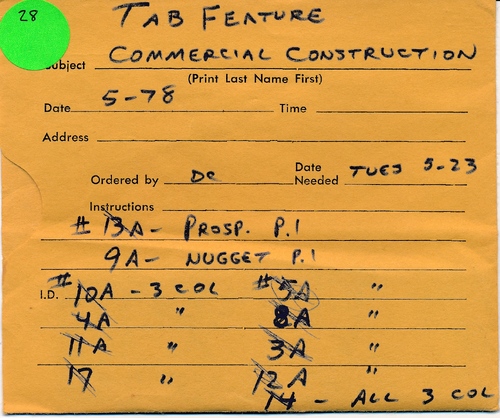 28
TAB FEATURE
Subject COMMERCIAL CONSTRUCTION
(Print Last Name First)
Date 5-78 Time
Address
Ordered by DC Date Needed TUES 5-23
Instructions
# 13A - PROSP. P.1
9A - NUGGET P.1
I.D. # 10A - 3 COL # 5A "
4A " 8A "
11A " 3A "
17 " 12A "
14 - ALL 3 COL